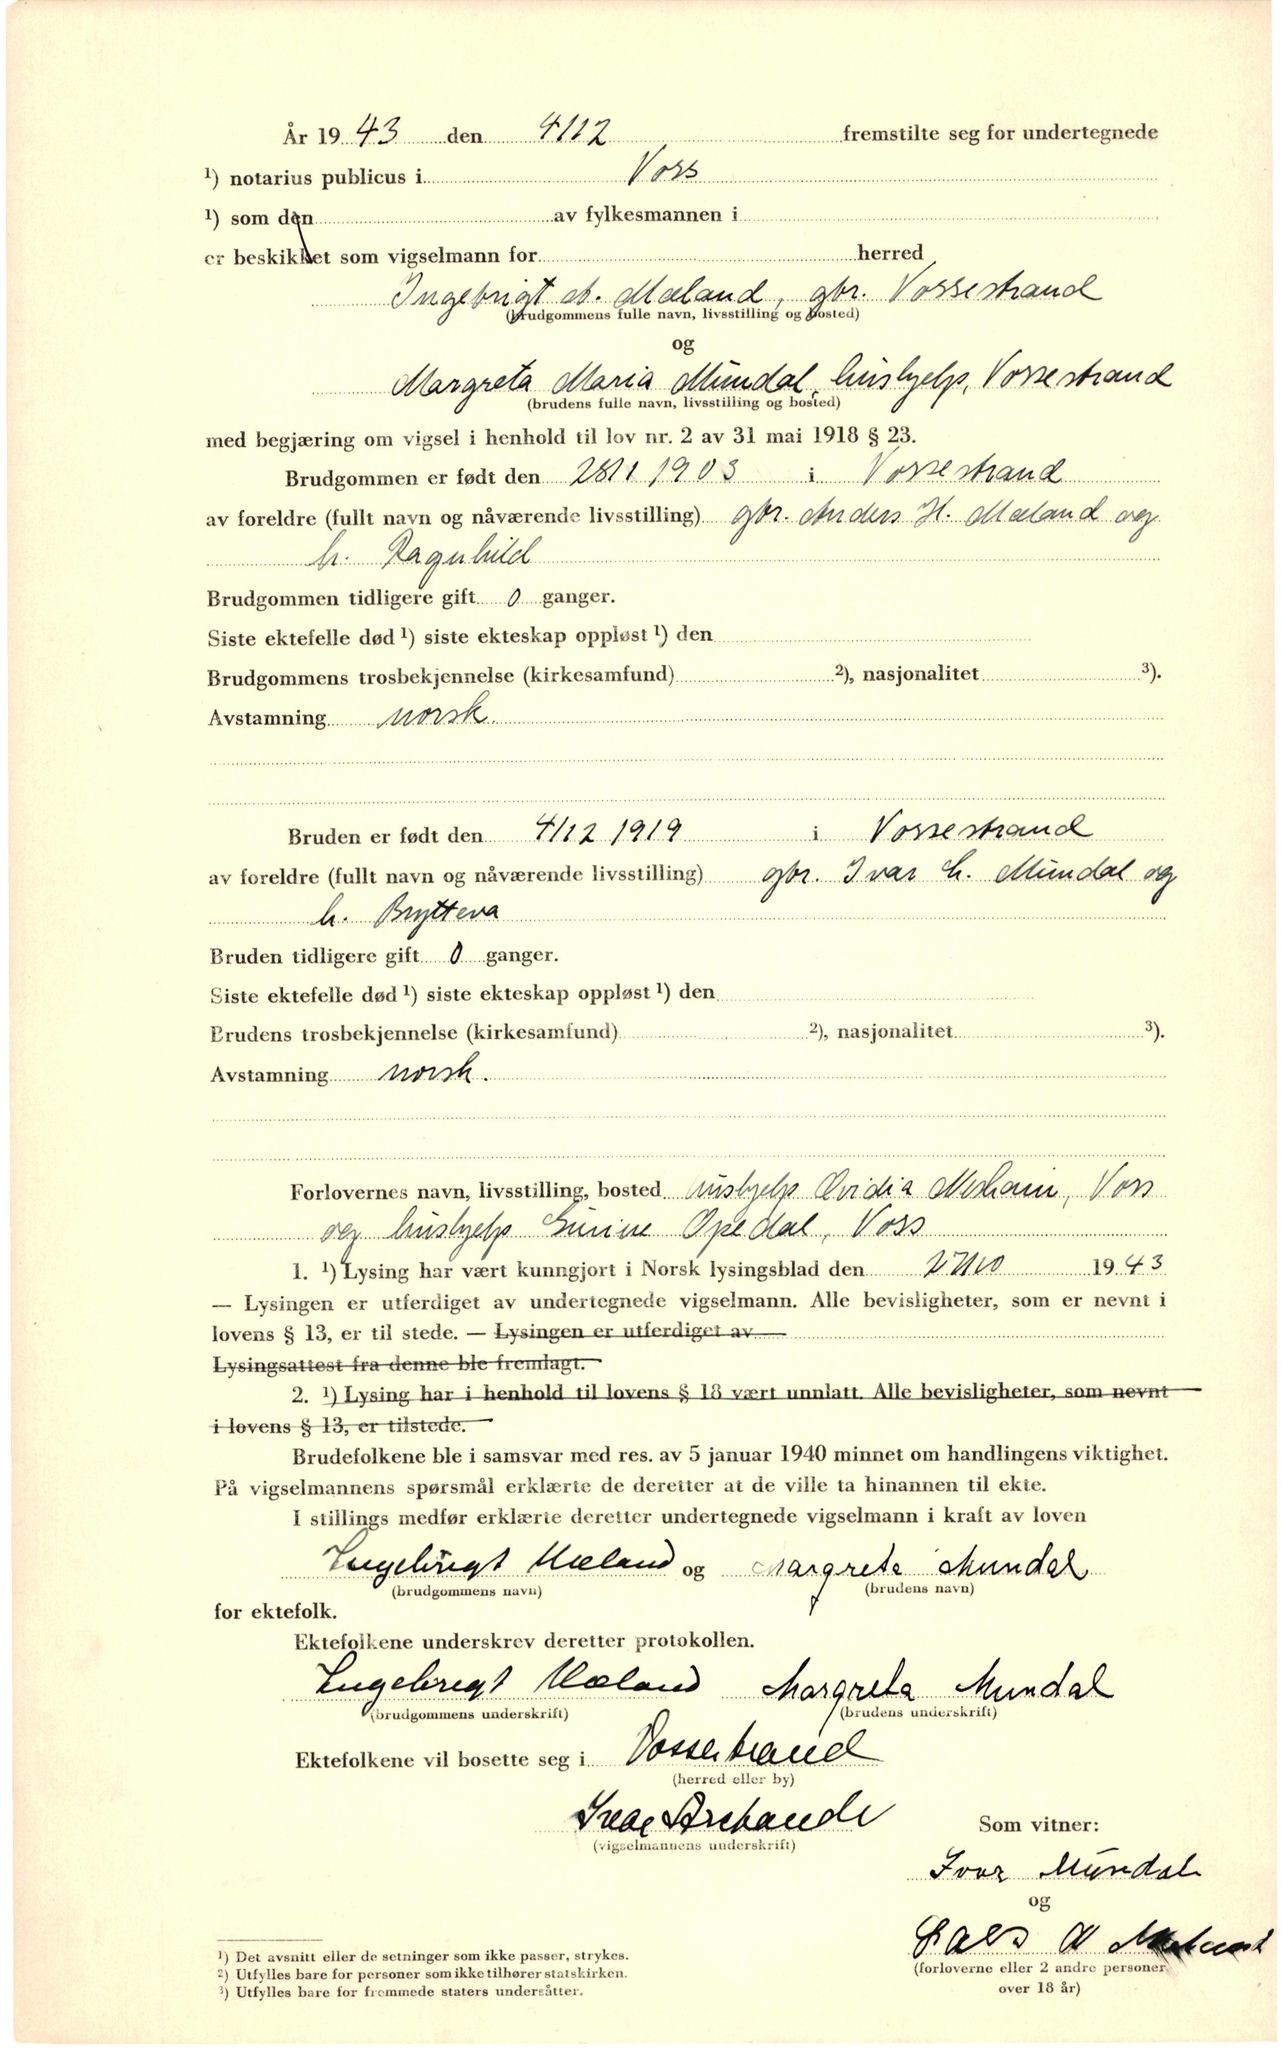 År 1943 den 4/12 fremstilte seg for undertegnede
¹) notarius publicus i Voss
¹) som den av fylkesmannen i
er beskikket som vigselmann for herred
Ingebrigt A. Mæland, gbr. Vossestrand
(brudgommens fulle navn, livsstilling og bosted)
og
Margreta Maria Mundal, hushjelp, Vossestrand
(brudens fulle navn, livsstilling og bosted)
med begjæring om vigsel i henhold til lov nr. 2 av 31 mai 1918 § 23.
Brudgommen er født den 28/1 1903 i Vossestrand
av foreldre (fullt navn og nåværende livsstilling) gbr. Anders H. Mæland og
h. Ragnhild
Brudgommen tidligere gift 0 ganger.
Siste ektefelle død ¹) siste ekteskap oppløst ¹) den
Brudgommens trosbekjennelse (kirkesamfund) ²), nasjonalitet ³).
Avstamning norsk.
Bruden er født den 4/12 1919 i Vossestrand
av foreldre (fullt navn og nåværende livsstilling) gbr. Ivar L. Mundal og
h. Brytteva
Bruden tidligere gift 0 ganger.
Siste ektefelle død ¹) siste ekteskap oppløst ¹) den
Brudens trosbekjennelse (kirkesamfund) ²), nasjonalitet ³).
Avstamning norsk.
Forlovernes navn, livsstilling, bosted hushjelp Ovidia, Voss
og hushjelp Opedal, Voss
1. ¹) Lysing har vært kunngjort i Norsk lysingsblad den 27/10 1943
— Lysingen er utferdiget av undertegnede vigselmann. Alle bevisligheter, som er nevnt i
lovens § 13, er til stede. — Lysingen er utferdiget av
Lysingsattest fra denne ble fremlagt.
2. ¹) Lysing har i henhold til lovens § 18 vært unnlatt. Alle bevisligheter, som nevnt
i lovens § 13, er tilstede.
Brudefolkene ble i samsvar med res. av 5 januar 1940 minnet om handlingens viktighet.
På vigselmannens spørsmål erklærte de deretter at de ville ta hinannen til ekte.
I stillings medfør erklærte deretter undertegnede vigselmann i kraft av loven
Ingebrigt Mæland og Margreta Mundal
(brudgommens navn) (brudens navn)
for ektefolk.
Ektefolkene underskrev deretter protokollen.
Ingebrigt Mæland Margreta Mundal
(brudgommens underskrift) (brudens underskrift)
Ektefolkene vil bosette seg i Vossestrand
(herred eller by)
(vigselmannens underskrift)
Som vitner:
Ivar Mundal
og
Lars
(forloverne eller 2 andre personer
over 18 år)
¹) Det avsnitt eller de setninger som ikke passer, strykes.
²) Utfylles bare for personer som ikke tilhører statskirken.
³) Utfylles bare for fremmede staters undersåtter.